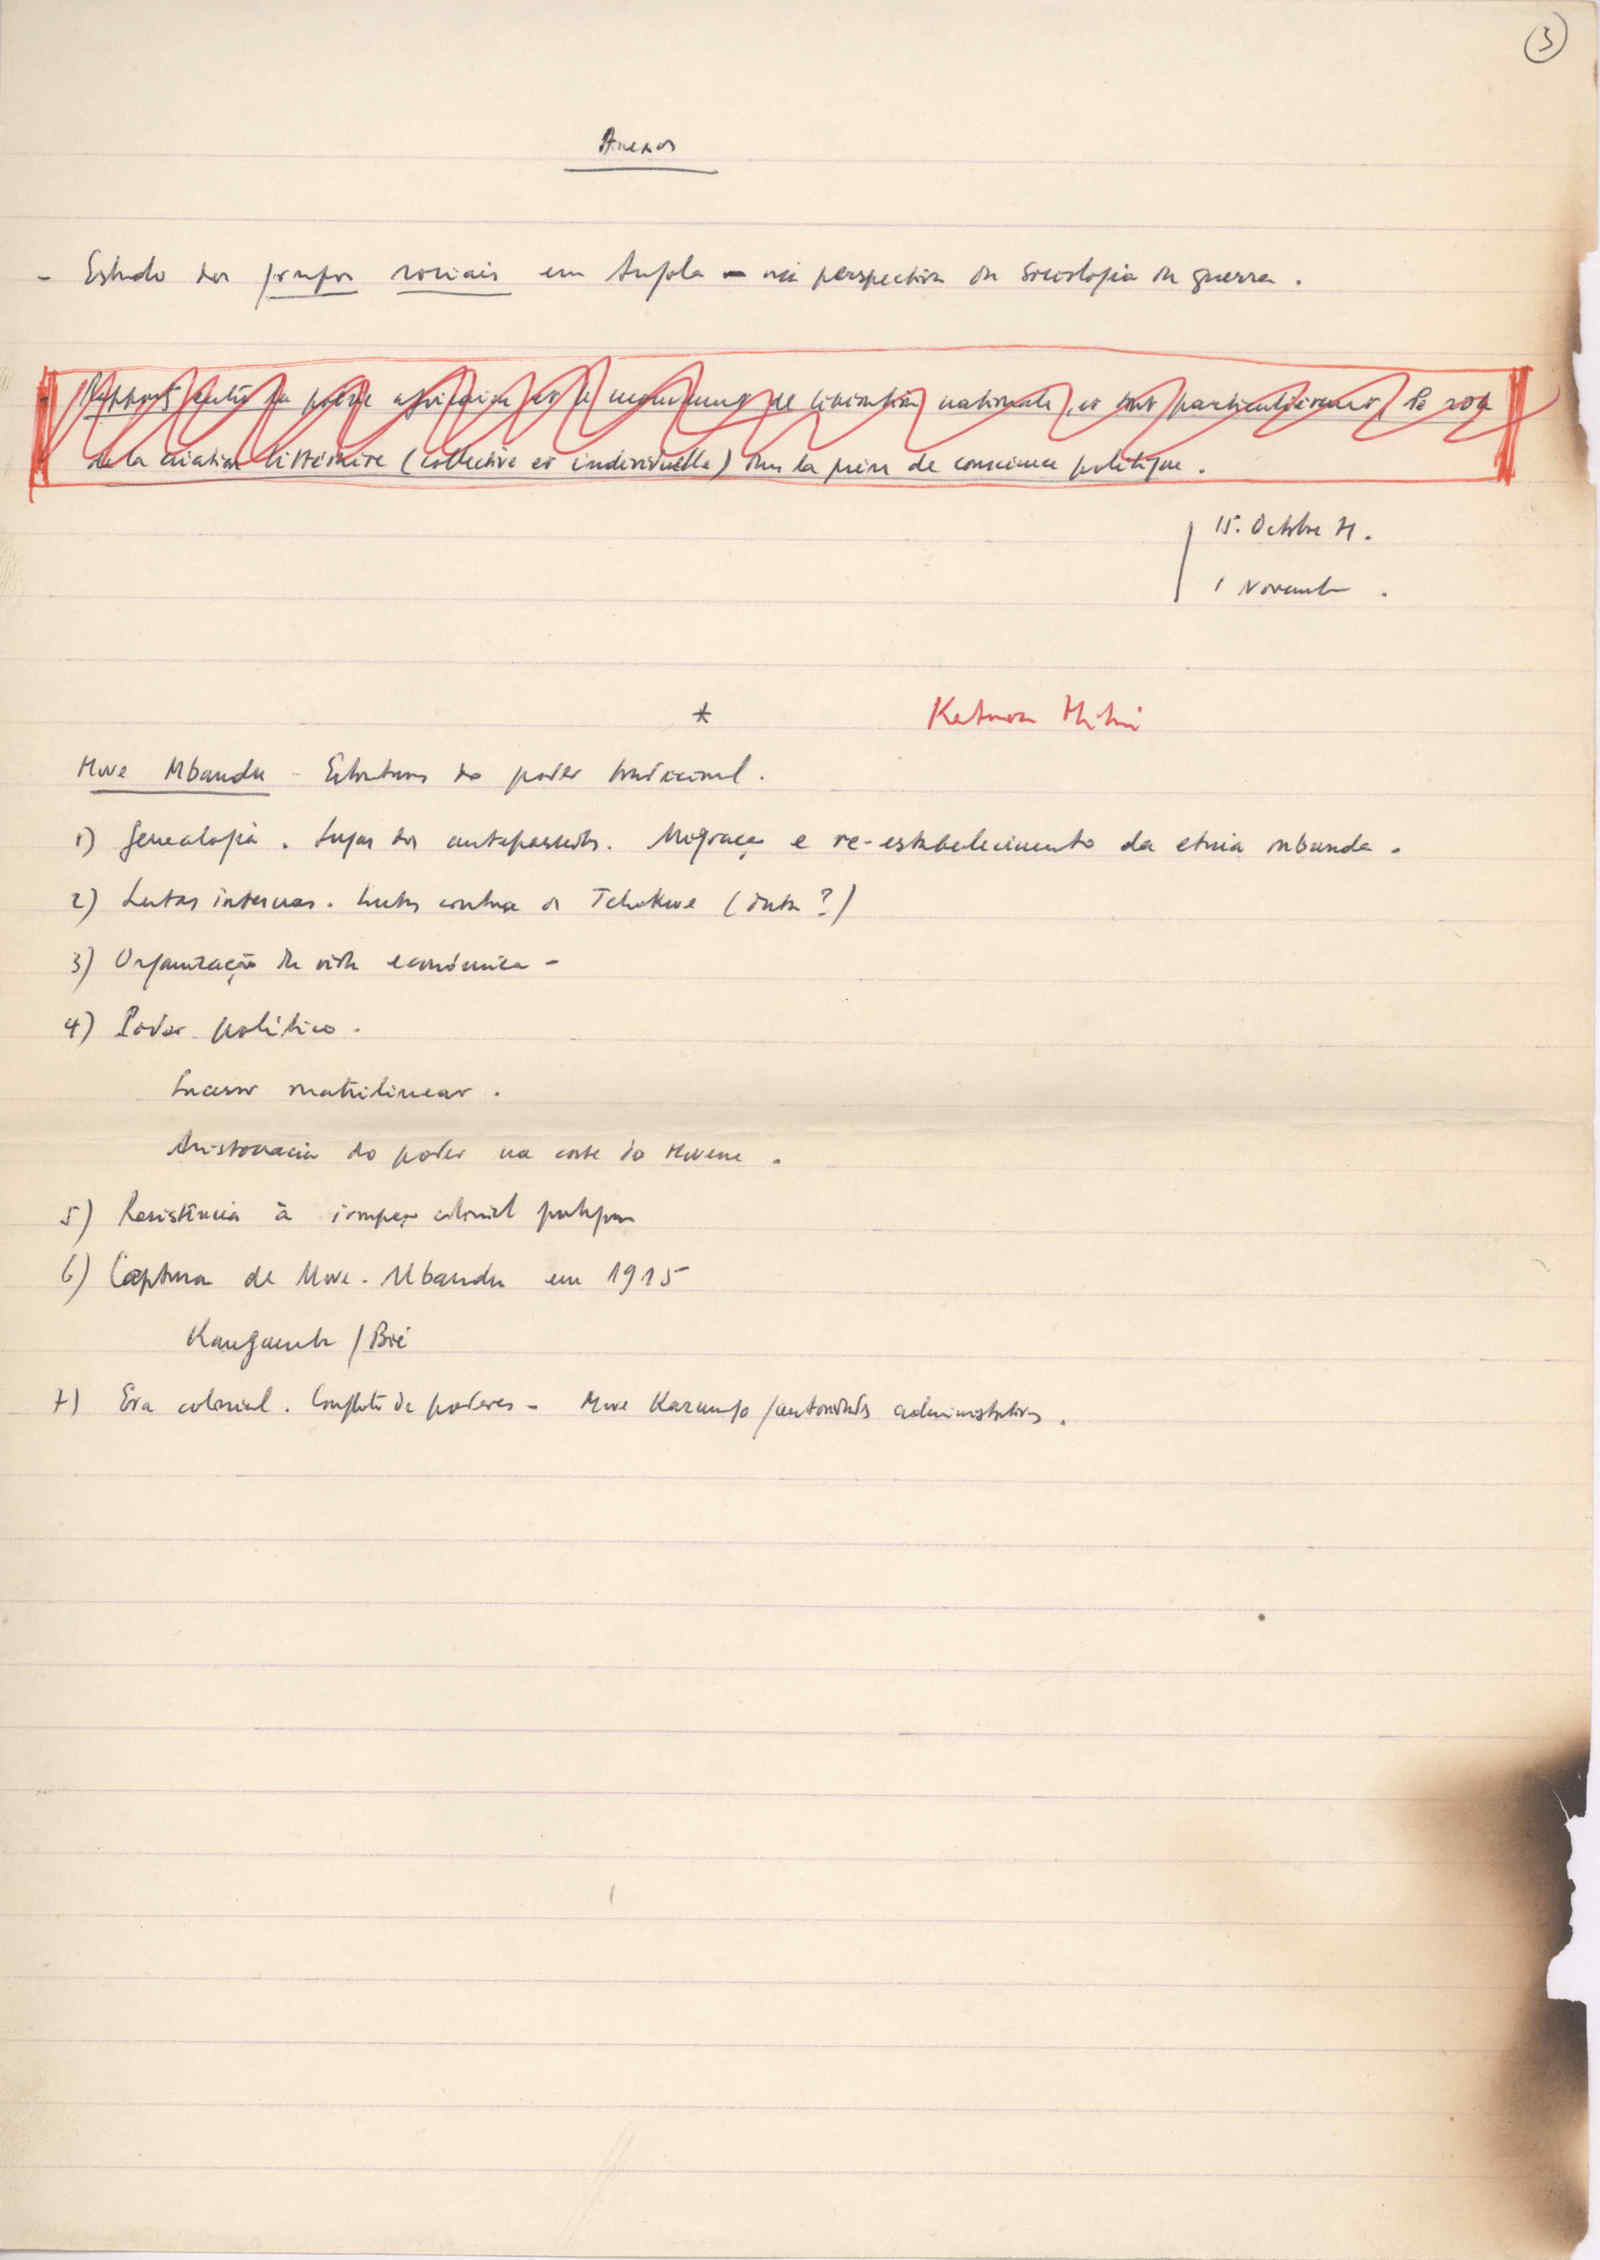 3
Anexos
- Estudo dos grupos sociais em Angola - na perspectiva da sociologia da guerra.
- Rapports entre la poésie africaine et le mouvement de libération nationale, et tout particulièrement, le rôle
de la création littéraire (collective et individuelle) dans la prise de conscience politique.
15. Octobre 71.
1 Novembre .
*
Katmon
Mwe Mbandu - Estrutura do poder tradicional.
1) Genealogia. Lugar dos antepassados. Migração e re-estabelecimento da etnia mbunda.
2) Lutas internas. Lutas contra os Tchokwe (data ?)
3) Organização da vida económica -
4) Poder político.
Sucessor matrilinear.
Aristocracia do poder na corte do Mwene.
5) Resistência à colonial
6) Captura de Mwe. Mbandu em 1915
Kangamba / Bié
7) Era colonial. Conflito de poderes - Mwe Kazungo / autoridades administrativas.